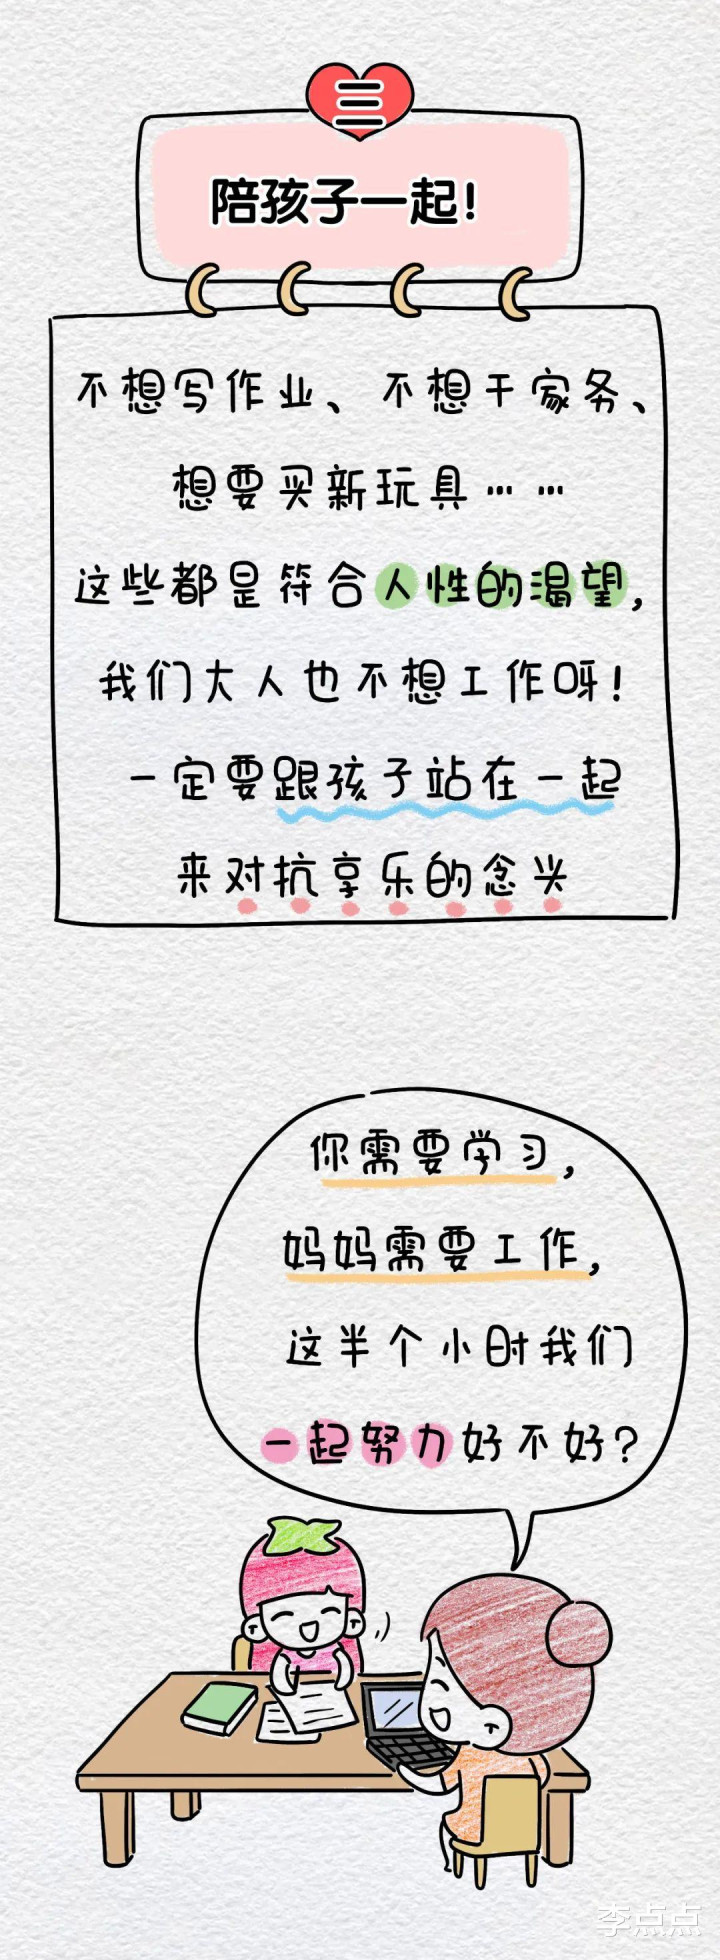 三
陪孩子一起!
不想写作业、不想干家务、
想要买新玩具……
这些都是符合人性的渴望,
我们大人也不想工作呀!
一定要跟孩子站在一起
来对抗享乐的念头
你需要学习,
妈妈需要工作,
这半个小时我们
一起努力好不好?
李点点